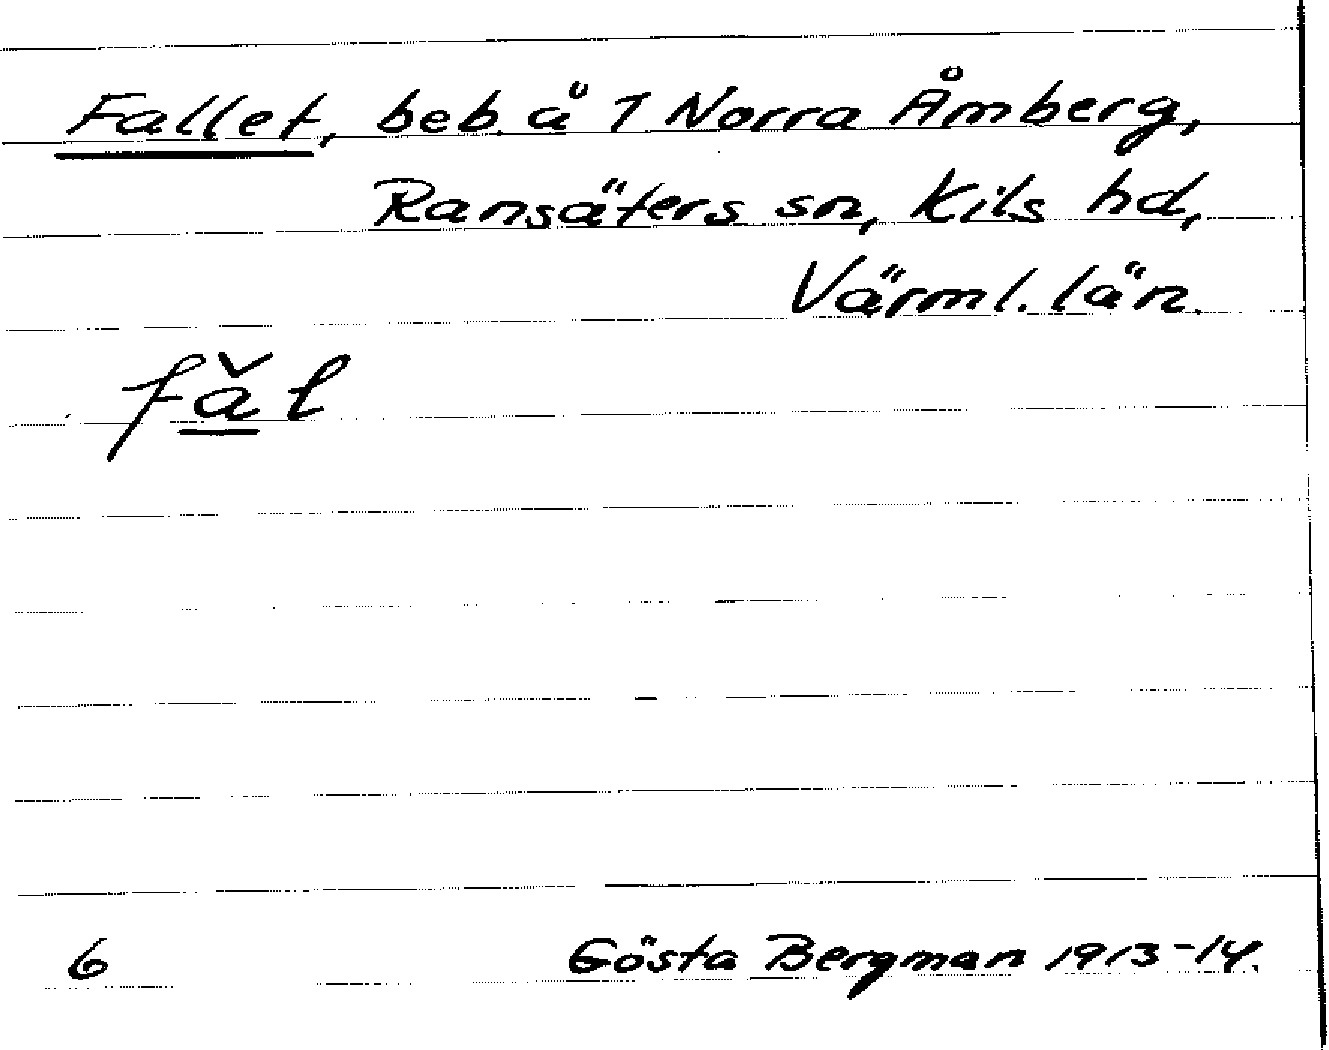 Fallet, beb. å 1 Norra Åmberg,
Ransäters sn, Kils hd,
Värml. län.
fǎ̱l
6 Gösta Bergman 1913-14.